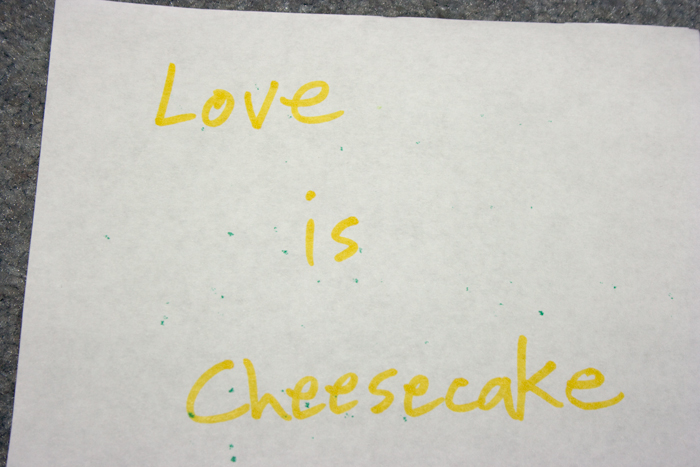 Love
is
Cheesecake